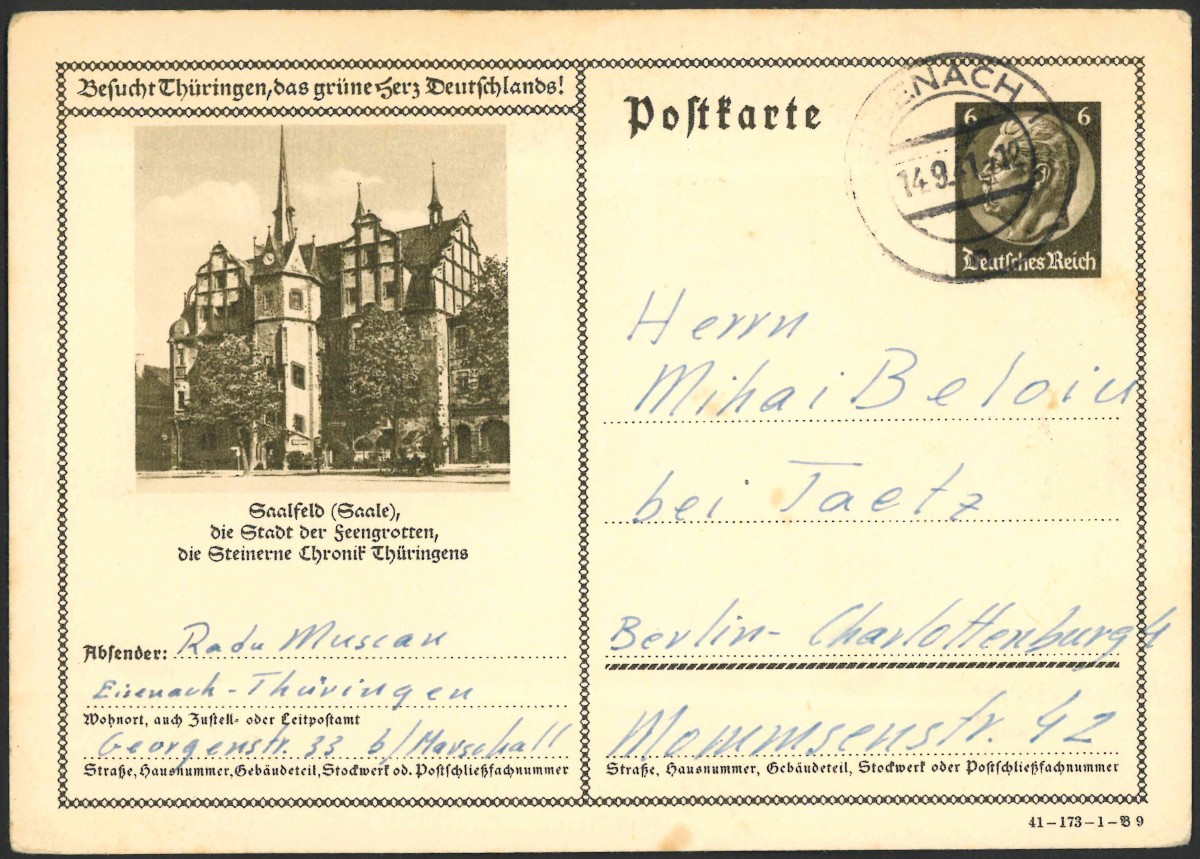 Besucht Thüringen, das grüne Herz Deutschlands!
Saalfeld (Saale),
die Stadt der Feengrotten,
die Steinerne Chronik Thüringens
Absender: Radu Muscan
Eisenach-Thüringen
Wohnort, auch Zustell- oder Leitpostamt
Georgenstr. 33 b/Marschall
Straße, Hausnummer, Gebäudeteil, Stockwerk od. Postschließfachnummer
Postkarte
ENACH
14.9.41-12
6 6
Deutsches Reich
Herrn
Mihai Beloiu
bei Taetz
Berlin-Charlottenburg 4
Mommsenstr. 42
Straße, Hausnummer, Gebäudeteil, Stockwerk oder Postschließfachnummer
41-173-1-B 9